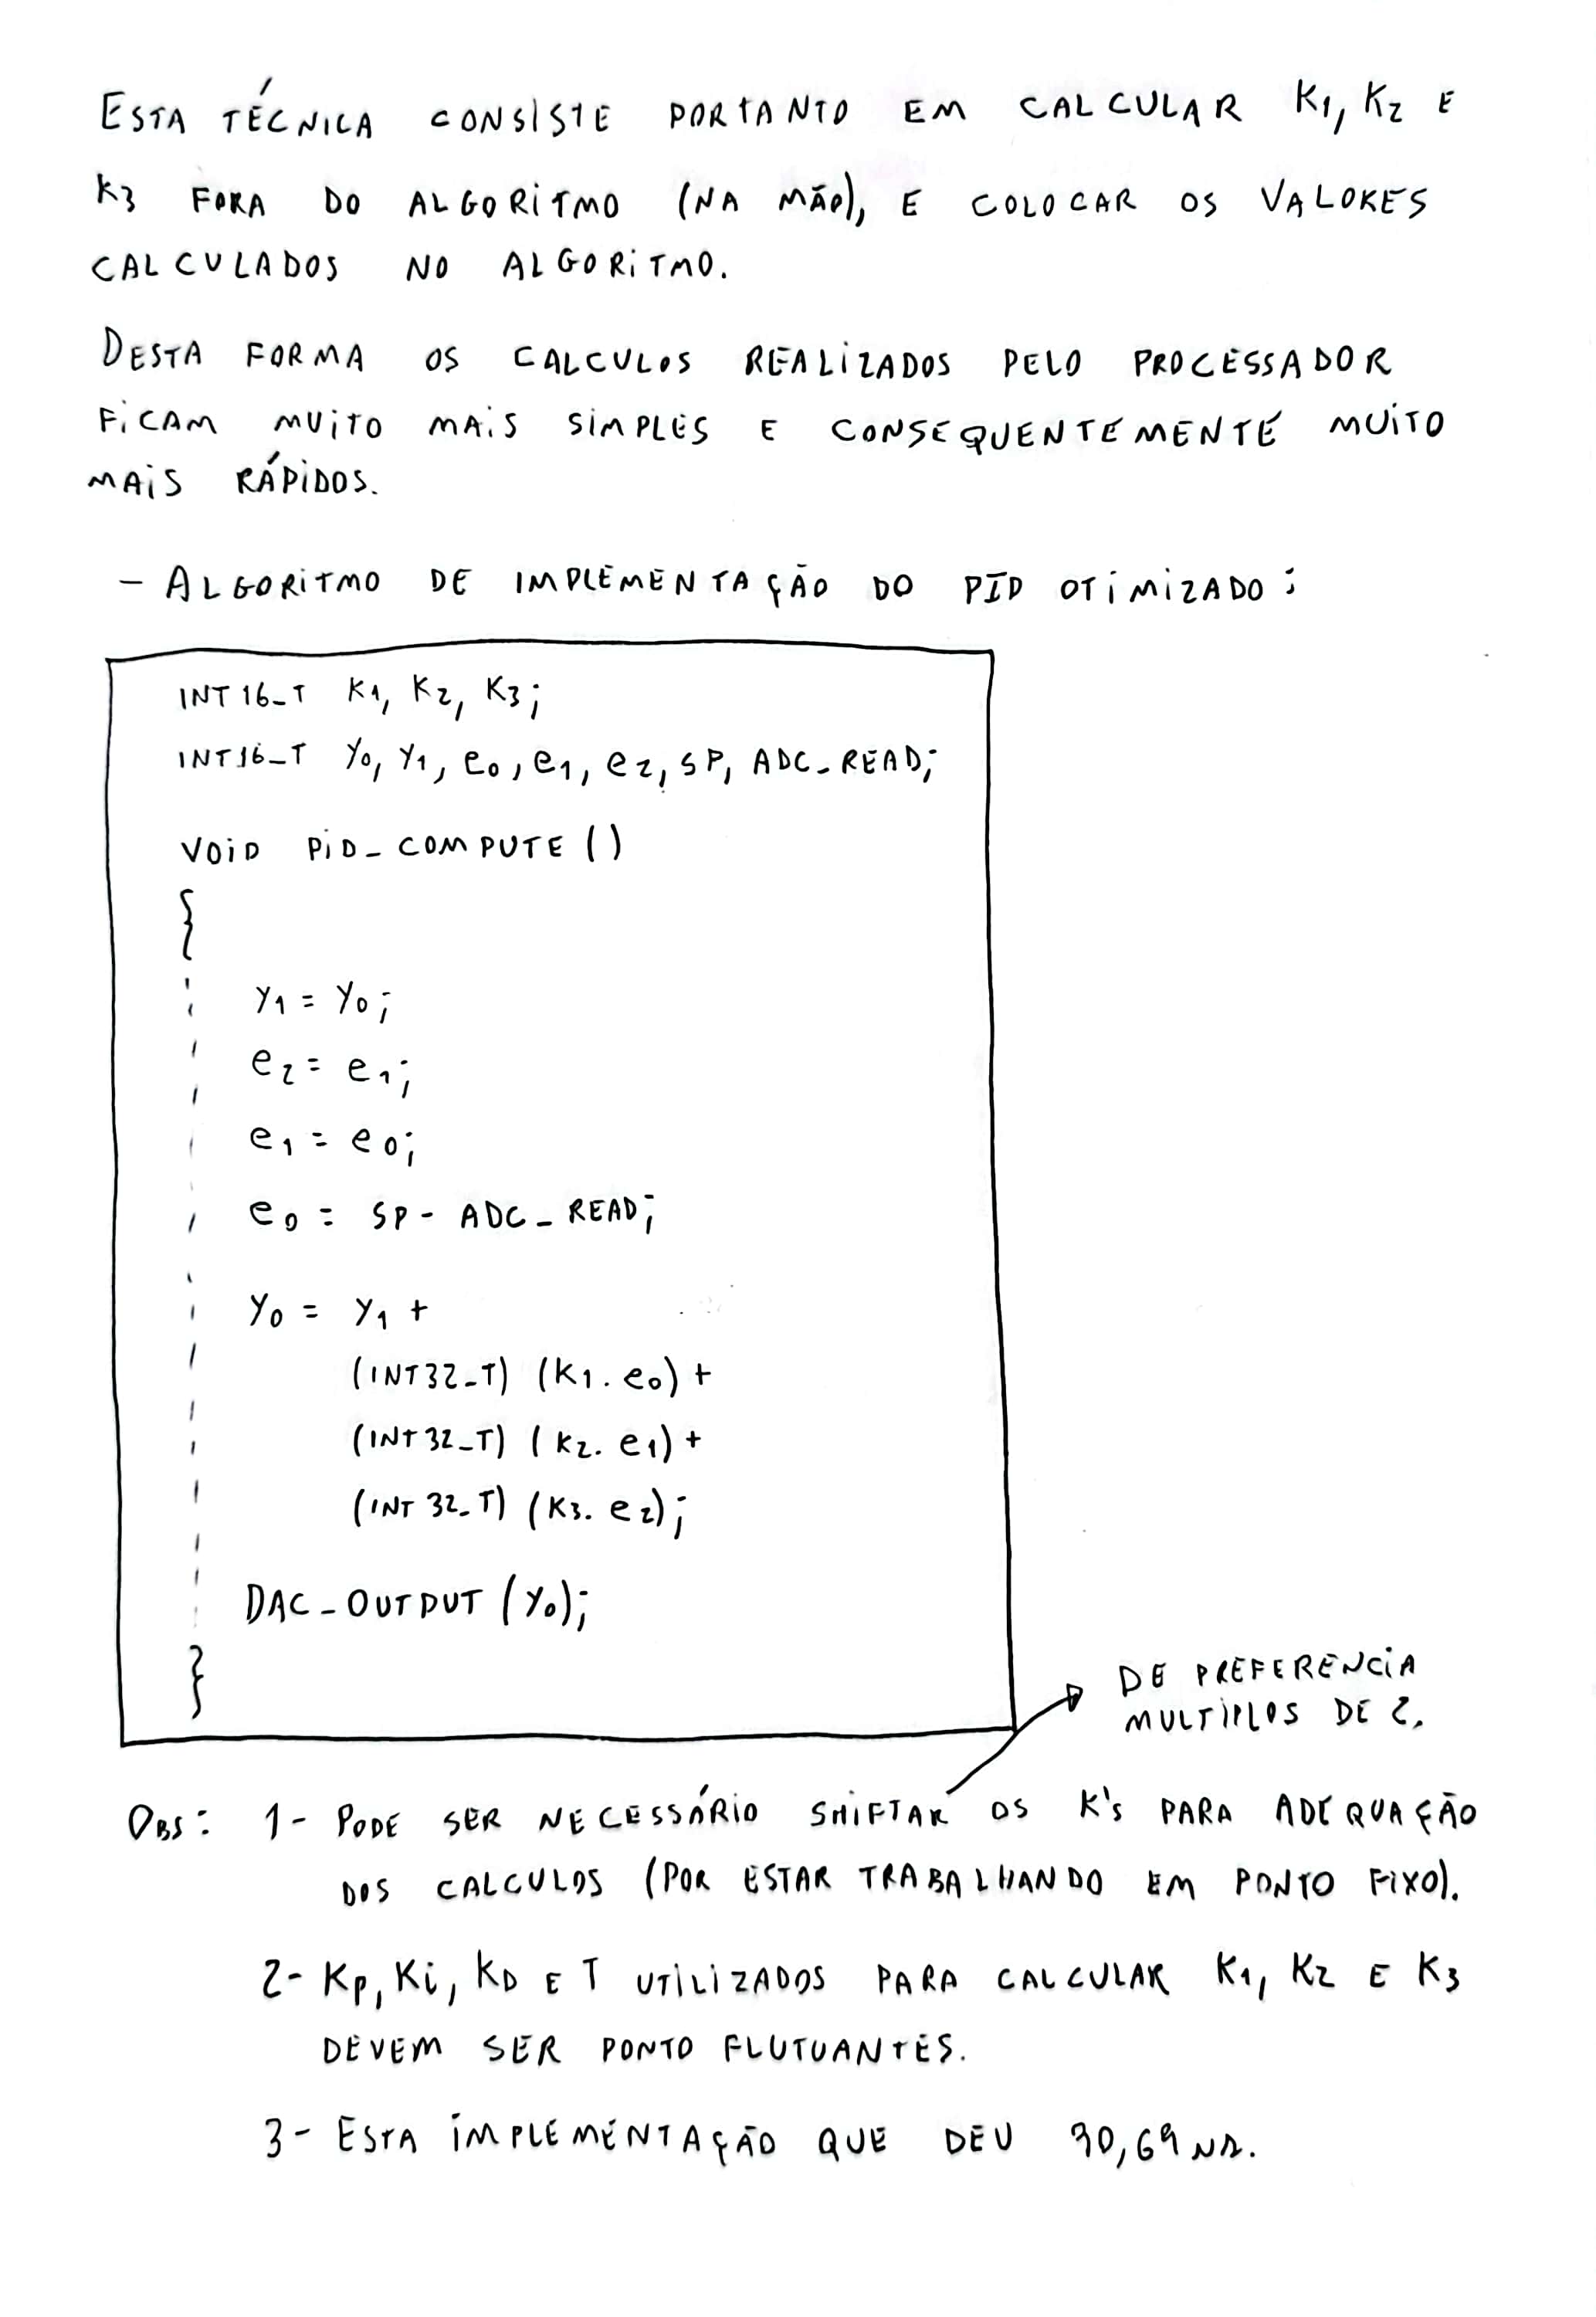 ESTA TÉCNICA CONSISTE PORTANTO EM CALCULAR K1, K2 E
K3 FORA DO ALGORITMO (NA MÃO), E COLOCAR OS VALORES
CALCULADOS NO ALGORITMO.
DESTA FORMA OS CALCULOS REALIZADOS PELO PROCESSADOR
FICAM MUITO MAIS SIMPLES E CONSEQUENTEMENTE MUITO
MAIS RÁPIDOS.
- ALGORITMO DE IMPLEMENTAÇÃO DO PID OTIMIZADO:
INT16_T K1, K2, K3;
INT16_T Y0, Y1, e0, e1, e2, SP, ADC_READ;
VOID PID_COMPUTE ()
{
Y1 = Y0;
e2 = e1;
e1 = e0;
e0 = SP - ADC_READ;
Y0 = Y1 +
(INT32_T) (K1. e0) +
(INT32_T) (K2. e1) +
(INT32_T) (K3. e2);
DAC_OUTPUT (Y0);
}
DE PREFERENCIA
MULTIPLOS DE 2.
OBS: 1- PODE SER NECESSÁRIO SHIFTAR OS K's PARA ADEQUAÇÃO
DOS CALCULOS (POR ESTAR TRABALHANDO EM PONTO FIXO).
2- Kp, Ki, KD E T UTILIZADOS PARA CALCULAR K1, K2 E K3
DEVEM SER PONTO FLUTUANTES.
3- ESTA IMPLEMENTAÇÃO QUE DEU